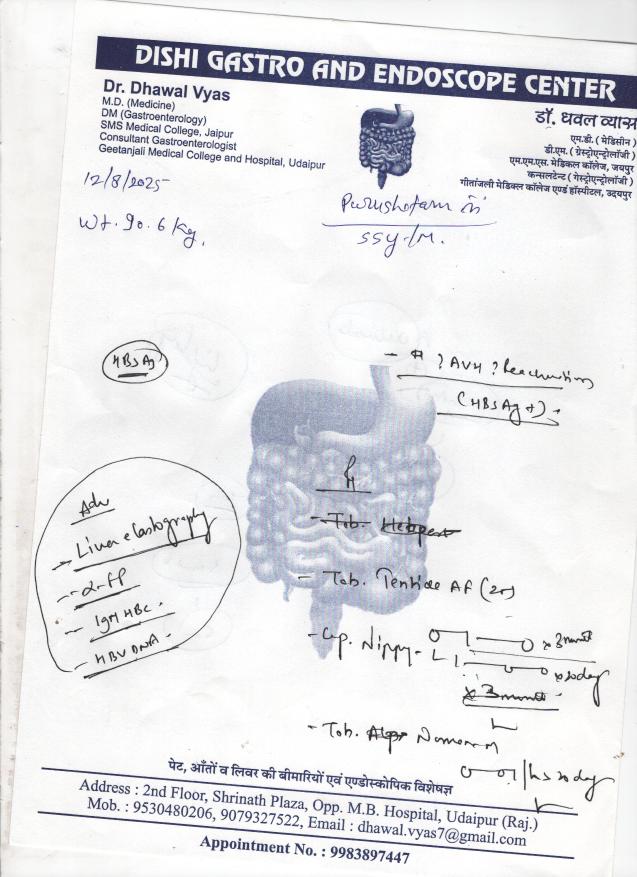 DISHI GASTRO AND ENDOSCOPE CENTER
Dr. Dhawal Vyas
M.D. (Medicine)
DM (Gastroenterology)
SMS Medical College, Jaipur
Consultant Gastroenterologist
Geetanjali Medical College and Hospital, Udaipur
डॉ. धवल व्यास
एम.डी. ( मेडिसीन )
डी.एम. ( ग्रेस्ट्रोएन्ट्रोलॉजी )
एम.एम.एस. मेडिकल कॉलेज, जयपुर
कन्सलटेन्ट ( गेस्ट्रोएन्ट्रोलॉजी )
गीतांजली मेडिकल कॉलेज एण्ड हॉस्पीटल, उदयपुर
12/8/2025
Wt. 90.6 Kg.
Purushotam
55y/M.
HBsAg
- # ? AVH ? Reactivation
(HBsAg +)
Adv
Liver elastography
- α-FP
- IgM HBC
- HBV DNA
- Tab.
- Tab. AF (25)
- Cap. x 3 month
x 20 day
x 3 month
- Tab.
/hs 20 day
पेट, आँतों व लिवर की बीमारियों एवं एण्डोस्कोपिक विशेषज्ञ
Address : 2nd Floor, Shrinath Plaza, Opp. M.B. Hospital, Udaipur (Raj.)
Mob. : 9530480206, 9079327522, Email : dhawal.vyas7@gmail.com
Appointment No. : 9983897447